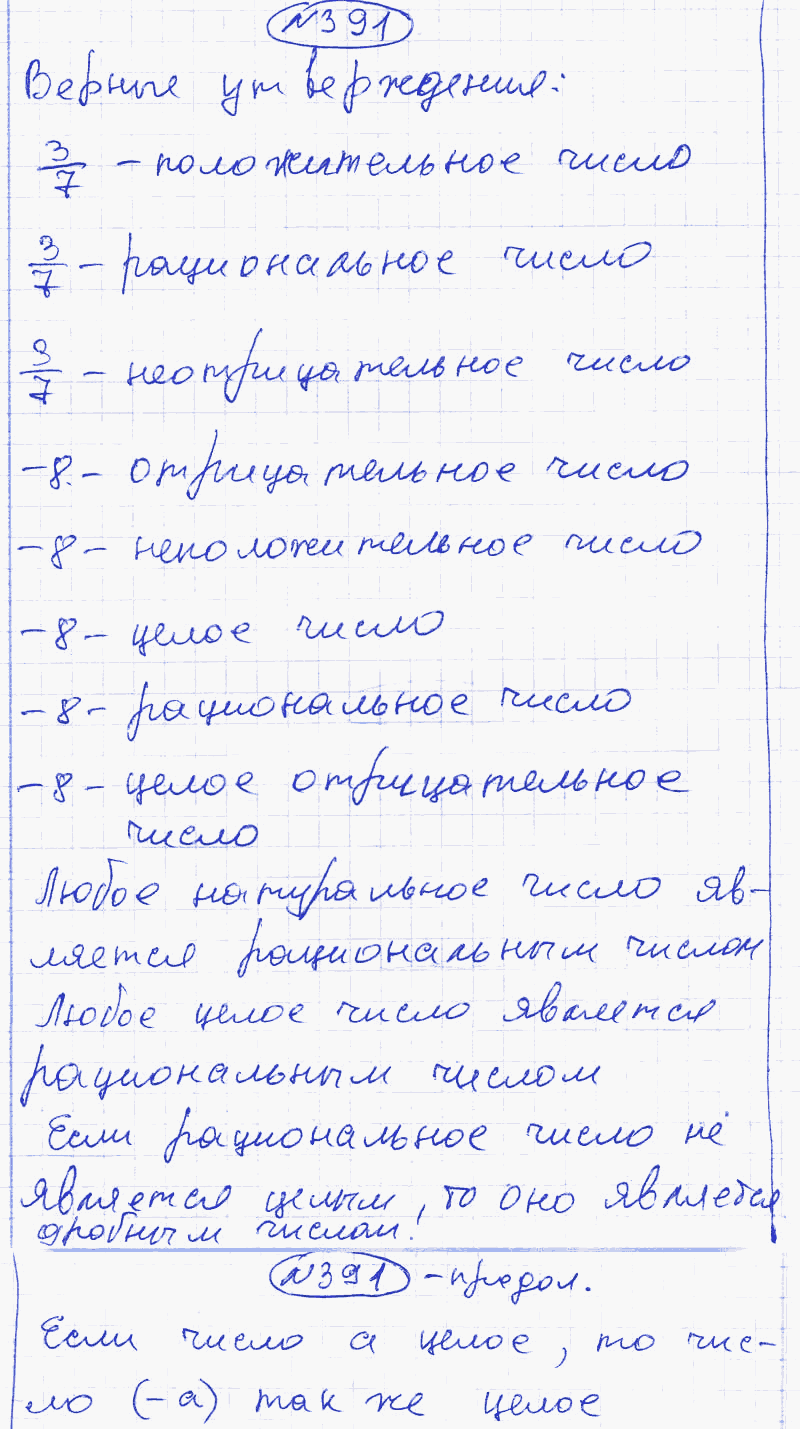 №391
Верные утверждения:
3/7 - положительное число
3/7 - рациональное число
3/7 - неотрицательное число
-8 - отрицательное число
-8 - неположительное число
-8 - целое число
-8 - рациональное число
-8 - целое отрицательное
число
Любое натуральное число яв-
ляется рациональным числом
Любое целое число является
рациональным числом
Если рациональное число не
является целым, то оно является
дробным числом.
№391 - продол.
Если число а целое, то чис-
ло (-а) так же целое